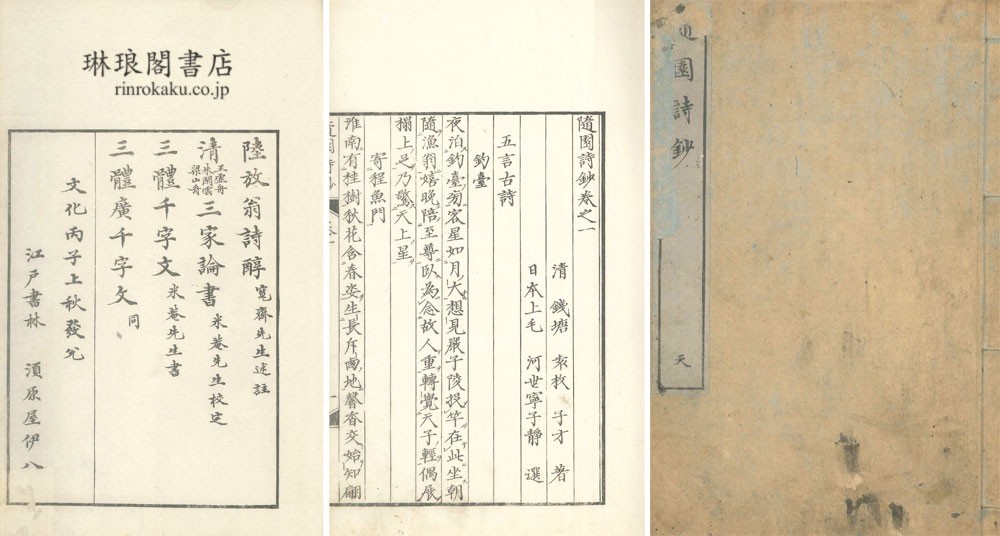 琳琅閣書店
rinrokaku.co.jp
陸放翁詩醇 寛齋先生述註
清 王虚舟 朱閑雲 梁山舟 三家論書 米菴先生校定
三體千字文 米菴先生書
三體廣千字文 同
文化丙子上秋發兌
江戸書林 須原屋伊八
隨園詩鈔卷之一
清 錢塘 袁枚 子才 著
日本上毛 河世寧子靜 選
五言古詩
釣臺
夜泊釣臺旁客星如月大想見嚴子陵投竿在此坐朝
隨漁翁嬉晚陪至尊臥為念故人重轉覺天子輕偶展
榻上足乃驚天上星
寄程魚門
淮南有桂樹秋花含春姿生長斥鹵地馨香交始知翩
園詩鈔
天